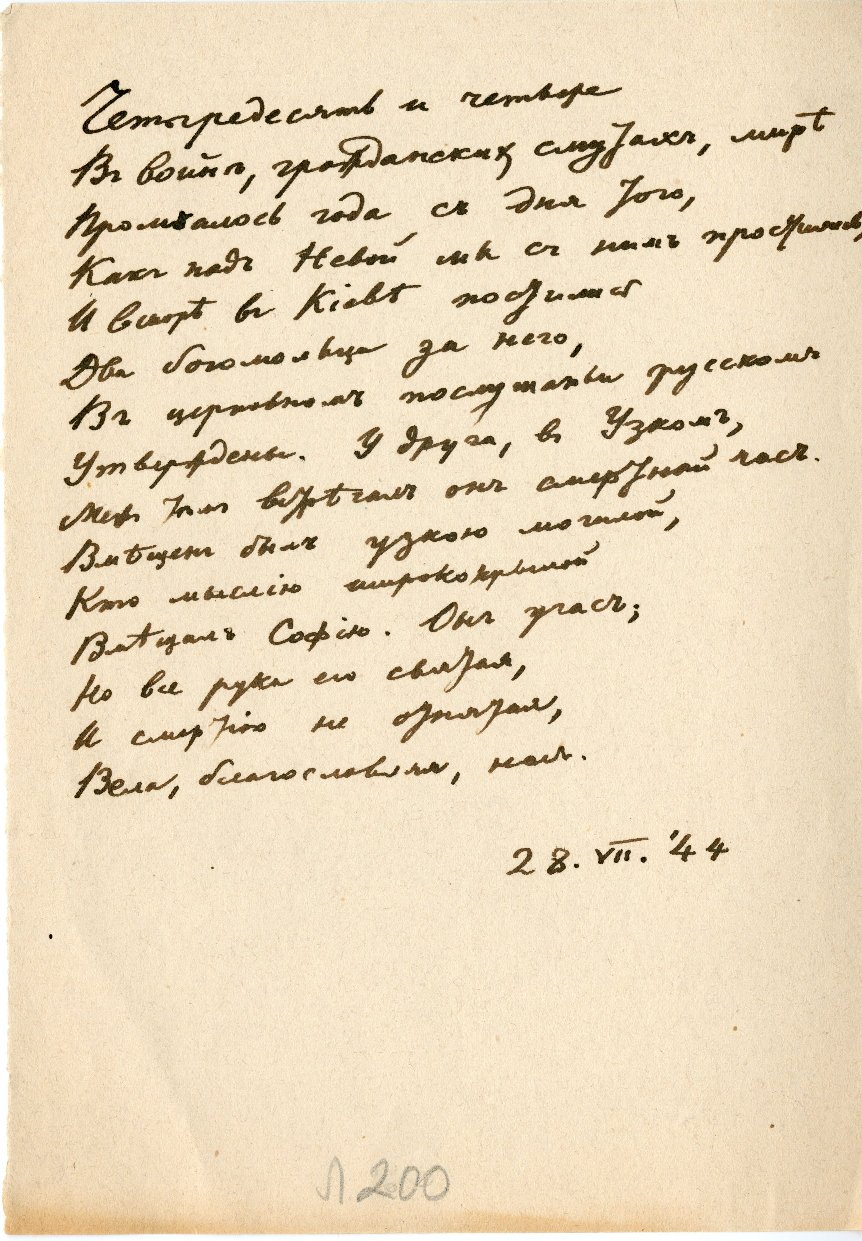 Четыредесять и четыре
Въ войнѣ, гражданскихъ смутахъ, мирѣ
Промчалось года съ дня того,
Какъ надъ Невой мы съ нимъ простились,
И вскорѣ въ Кіевѣ постились
Два богомольца за него,
Въ церковномъ послушаньи русскомъ
Утверждены. У друга, въ Узкомъ,
Межъ тѣмъ встрѣчалъ онъ смертный часъ.
Вмѣщенъ былъ узкою могилой,
Кто мыслію ширококрылой
Вмѣщалъ Софію. Онъ угасъ;
Но все рука его святая,
И смертію не отнятая,
Вела, благословляя, насъ.
28. VII. '44
Л 200